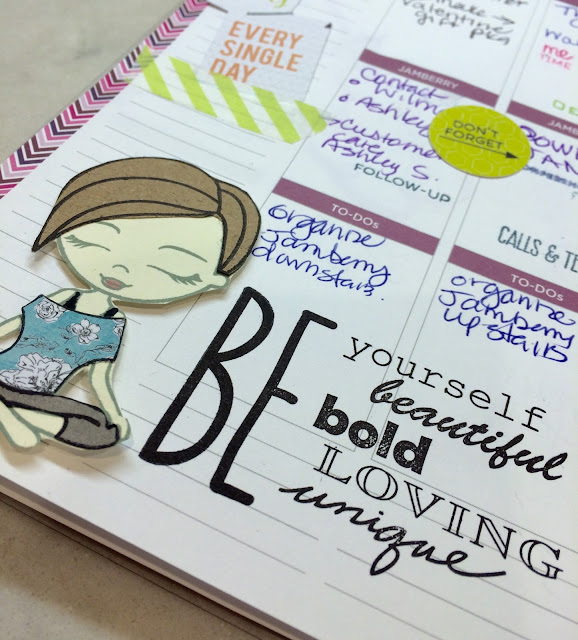 EVERY
SINGLE
DAY
make →
Valentine
gift pics
JAMBERRY
Contact
• Wilm
• Ashley
→ Customer
Care
Ashley S.
FOLLOW-UP
DON'T
FORGET
me
TIME
TO-DOs
organize
Jamberry
downstairs.
CALLS & TE
TO-DOs
organize
Jamberry
upstairs
BE
yourself
beautiful
bold
LOVING
unique